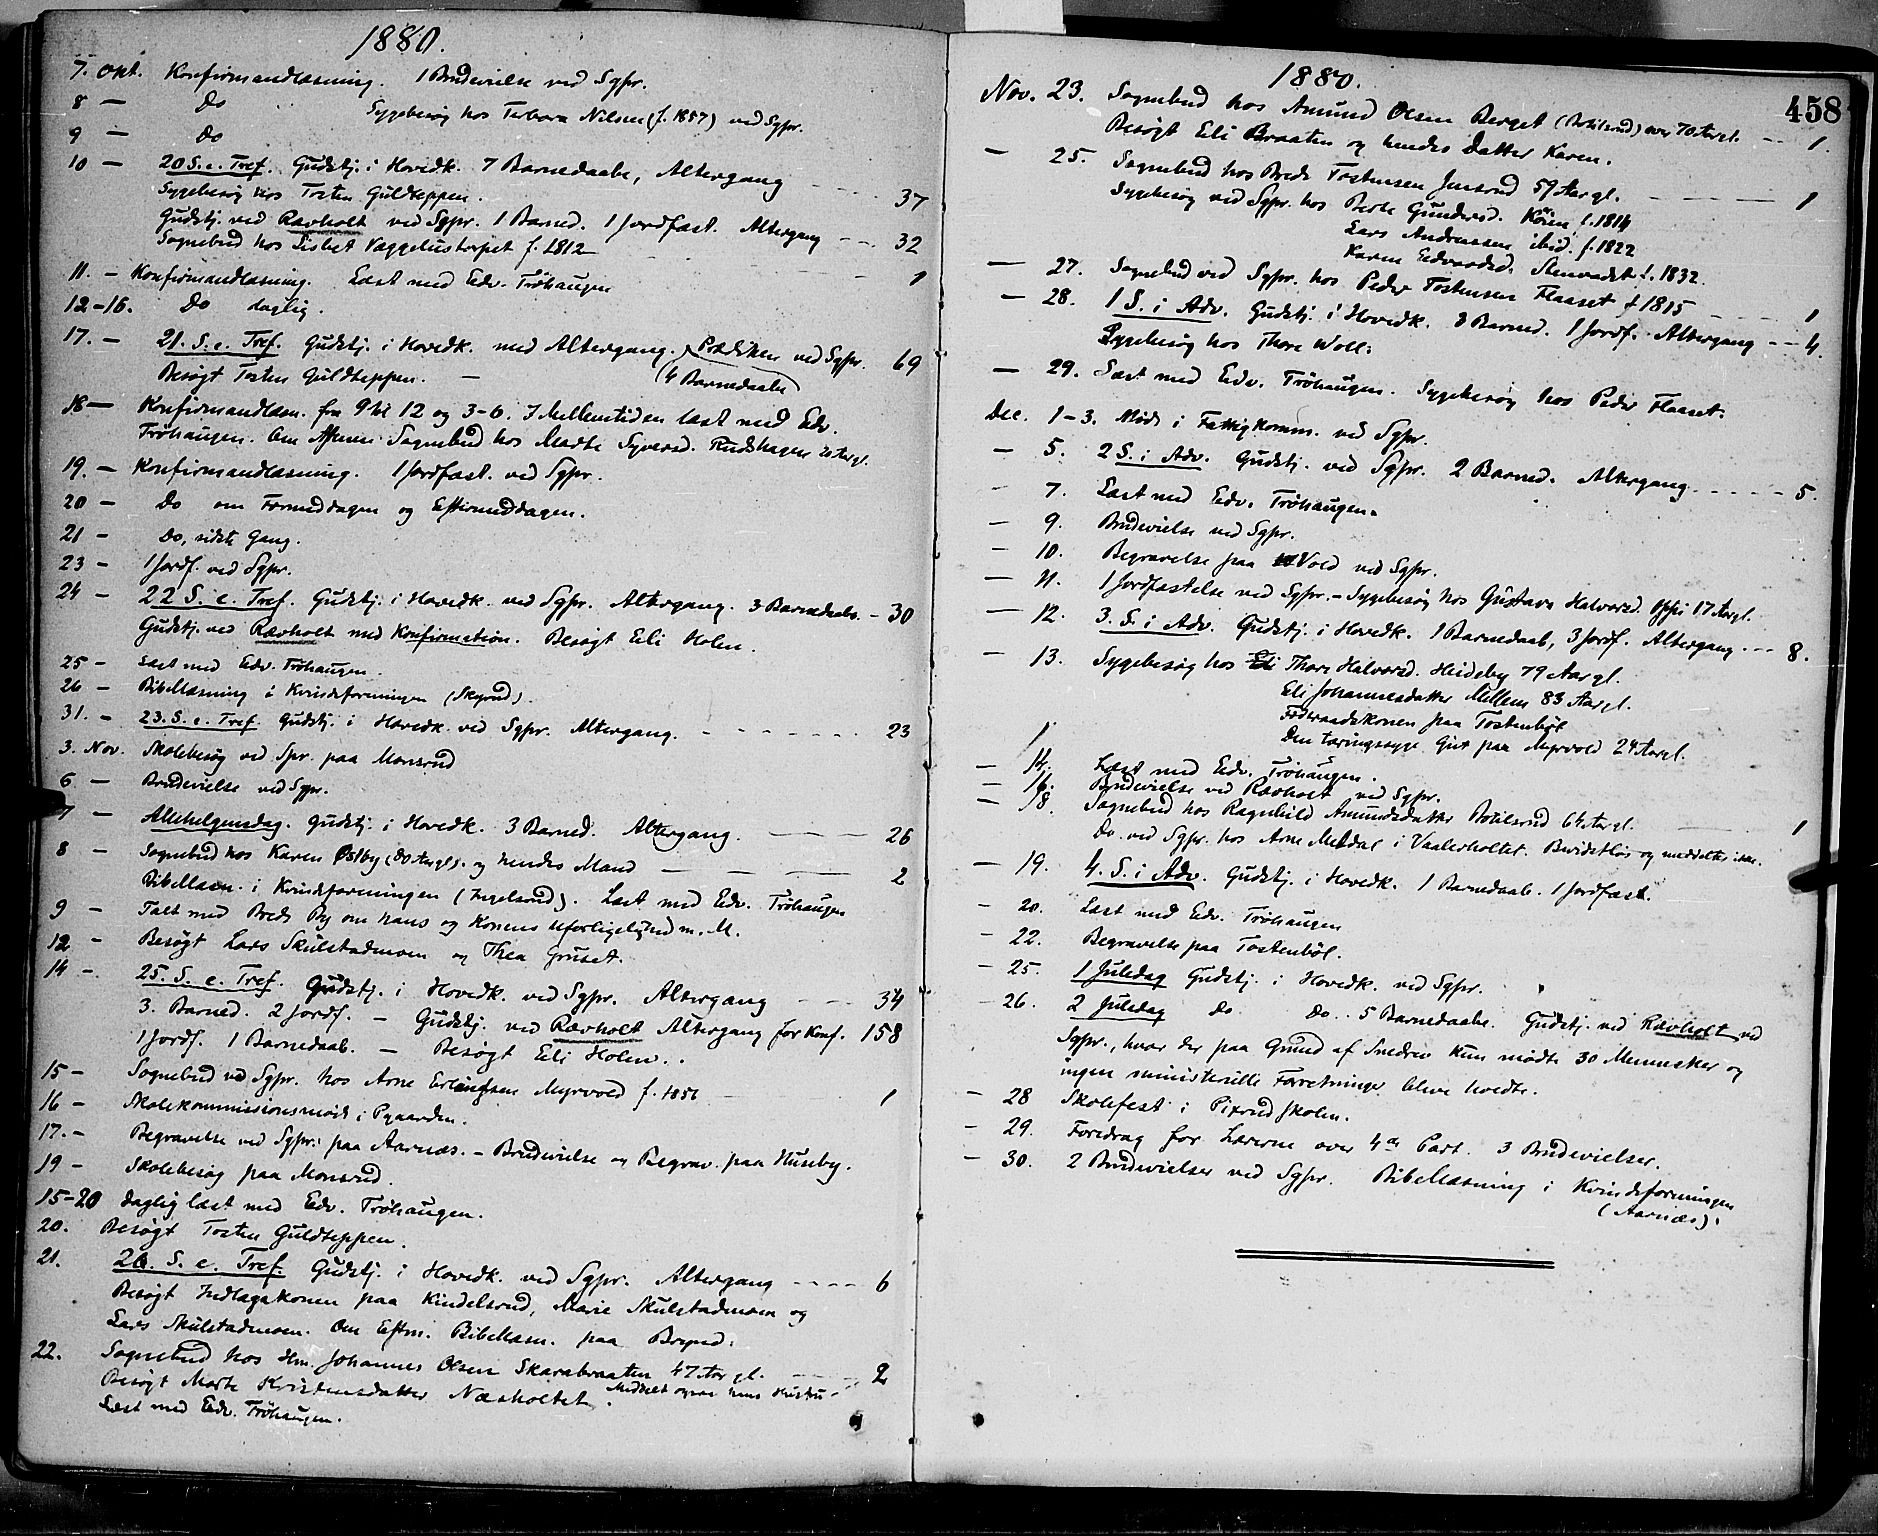 1880.
7. Okt. Konfirmandlæsning. 1 Brudevielse ved Sgpr.
8 — Do Sygebesøg hos Torborn Nilsen (f. 1857) ved Sgpr.
9 — Do
10 — 20 S. e. Tref. Gudstj. i Hovedk. 7 Barnedaabe, Altergang - - - 37
Sygebesøg hos Tosten Guldteppen.
Gudstj. ved Rævholt ved Sgpr. 1 Barned. 1 Jordfast. Altergang - - - 32
Sognebud hos Lisbet Væggelustorpet f. 1812 - - - 1
11. — Konfirmandlæsning. Læst med Edv. Tröhaugen
12-16. Do daglig.
17. — 21. S. e. Tref. Gudstj. i Hovedk. med Altergang. Prædiken ved Sgpr. 69
(4 Barnedaabe)
Besøgt Tosten Guldteppen. —
18 — Konfirmandlæsn. fra 9 til 12 og 3-6. I Mellemtiden læst med Edv.
Tröhaugen. Om Aftenen Sognebud hos Marte Syversd. Rudshagen
19. — Konfirmandlæsning. 1 Jordfast. ved Sgpr.
20 — Do om Formiddagen og Eftermiddagen.
21 — Do, sidste Gang.
23 — 1 Jordf. ved Sgpr.
24 — 22 S. e. Tref. Gudstj. i Hovedk. ved Sgpr. Altergang. 3 Barnedaabe. — 30
Gudstj. ved Rævholt med Konfirmation. Besøgt Eli Holen.
25 — Læst med Edv. Tröhaugen.
26 — Bibellæsning i Kvindeforeningen (Skyrud).
31. — 23. S. e. Tref. Gudstj. i Hovedk. ved Sgpr. Altergang. - - - 23
3. Nov. Skolebesøg ved Spr. paa Monsrud
6 — Brudevielse ved Sgpr.
7 — Allehelgensdag. Gudstj. i Hovedk. 3 Barned. Altergang. — — 26
8 — Sognebud hos Karen Østby (80 Aar gl.) og hendes Mand — — 2
Bibellæsn. i Kvindeforeningen (Ingelsrud). Læst med Edv. Tröhaugen
9 — Talt med Brede By om hans og Konens Uforligelighed m. M.
12 — Besøgt Lars Skulstadmoen og Thea Gruset.
14 — 25. S. e. Tref. Gudstj. i Hovedk. ved Sgpr. Altergang - - - 34
3. Barned. 2 Jordf. — Gudstj. ved Rævholt Altergang for Konf. 158
1 Jordf. 1 Barnedaab. — Besøgt Eli Holen.
15 — Sognebud ved Sgpr. hos Arne Erlingsen Myrvold f. 1856 - - 1
16 — Skolekommissionsmøde i Pgaarden.
17. — Begravelse ved Sgpr. paa Aarnæs. — Brudevielse og Begrav. paa Huseby.
19 — Skolebesøg paa Monsrud.
15-20 daglig læst med Edv. Tröhaugen.
20. Besøgt Tosten Guldteppen.
21. 26. S. e. Tref. Gudstj. i Hovedk. ved Sgpr. Altergang - - - - 6
Besøgt Indlagskonen paa Kindelsrud, Marie Skulstadmoen og
Lars Skulstadmoen. Om Eftm. Bibellæsn. paa Brynd.
22. Sognebud hos Hm. Johannes Olsen Skarabraaten 47 Aar gl. - - - 2
Meddelt ogsaa hans Hustru
Besøgt Marte Kristensdatter Næsholtet.
Læst med Edv. Tröhaugen.
1880.
458
Nov. 23. Sognebud hos Amund Olsen Berget (Botilsrud) over 70 Aar gl. - - 1.
Besøgt Eli Braaten og hendes Datter Karen.
— 25. Sognebud hos Brede Tostensen Jensrud 59 Aar gl. - - - 1
Sygebesøg ved Sgpr. hos Berte Gundersd. Köien f. 1814
Lars Andreassen ibid. f. 1822
Karen Edvardsd. Stenvadet f. 1832.
— 27. Sognebud ved Sgpr. hos Peder Tostensen Flaaset f. 1815 - - - 1
— 28. 1 S. i Adv. Gudstj. i Hovedk. 3 Barned. 1 Jordf. Altergang - - 4.
Sygebesøg hos Thore Woll.
— 29. Læst med Edv. Tröhaugen. Sygebesøg hos Peder Flaaset.
Dec. 1-3. Møde i Fattigkomm. ved Sgpr.
— 5. 2 S. i Adv. Gudstj. ved Sgpr. 2 Barned. Altergang - - - - 5.
— 7. Læst med Edv. Tröhaugen.
— 9. Brudevielse ved Sgpr.
— 10. Begravelse paa Vold ved Sgpr.
— 11. 1 Jordfæstelse ved Sgpr. — Sygebesøg hos Gustava Halvorsd. Oppi 17 Aar gl.
— 12. 3. S. i Adv. Gudstj. i Hovedk. 1 Barnedaab, 3 Jordf. Altergang - - - 8.
— 13. Sygebesøg hos Thore Halvorsd. Heideby 79 Aar gl.
Eli Johannesdatter Mellem 83 Aar gl.
Föderaadskonen paa Tostenböl
Den tæringssyge Gut paa Myrvold 24 Aar gl.
— 14. Læst med Edv. Tröhaugen.
— 16. Brudevielse ved Rævholt ved Sgpr.
— 18. Sognebud hos Ragnhild Amundsdatter Botilsrud 64 Aar gl. — 1
Do. ved Sgpr. hos Arne Meldal i Vaalerholtet. Bevidstløs og meddeltes ikke.
— 19. 4. S. i Adv. Gudstj. i Hovedk. 1 Barnedaab. 1 Jordfæst.
— 20. Læst med Edv. Tröhaugen
— 22. Begravelse paa Tostenböl.
— 25. 1 Juledag Gudstj. i Hovedk. ved Sgpr.
— 26. 2 Juledag do do. 5 Barnedaabe. Gudstj. ved Rævholt ved
Sgpr., hvor der paa Grund af Snedrev kun mødte 30 Mennesker og
ingen ministerielle Forretninger bleve holdte.
— 28 Skolefest i Pixrud skolen.
— 29. Foredrag for Lærerne over 4de Part. 3 Brudevielser.
— 30. 2 Brudevielser ved Sgpr. Bibellæsning i Kvindeforeningen
(Aarnæs).